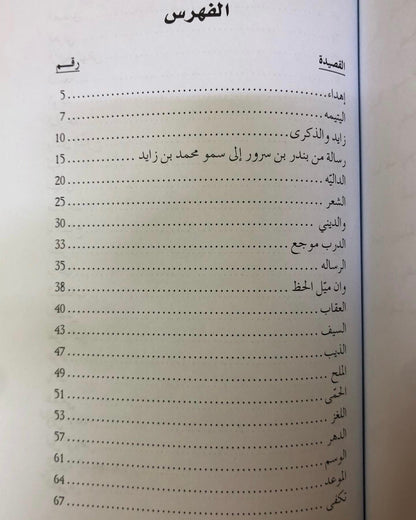 الفهرس
القصيدة رقم
إهداء 5
اليتيمه 7
زايد والذكرى 10
رسالة من بندر بن سرور إلى سمو محمد بن زايد 15
الداليّه 20
الشعر 25
والديني 30
الدرب موجع 33
الرساله 35
وان ميّل الحظ 38
العقاب 40
السيف 43
الذيب 47
الملح 49
الحمّى 51
اللغز 53
الدهر 57
الوسم 61
الموعد 64
تكفى 67